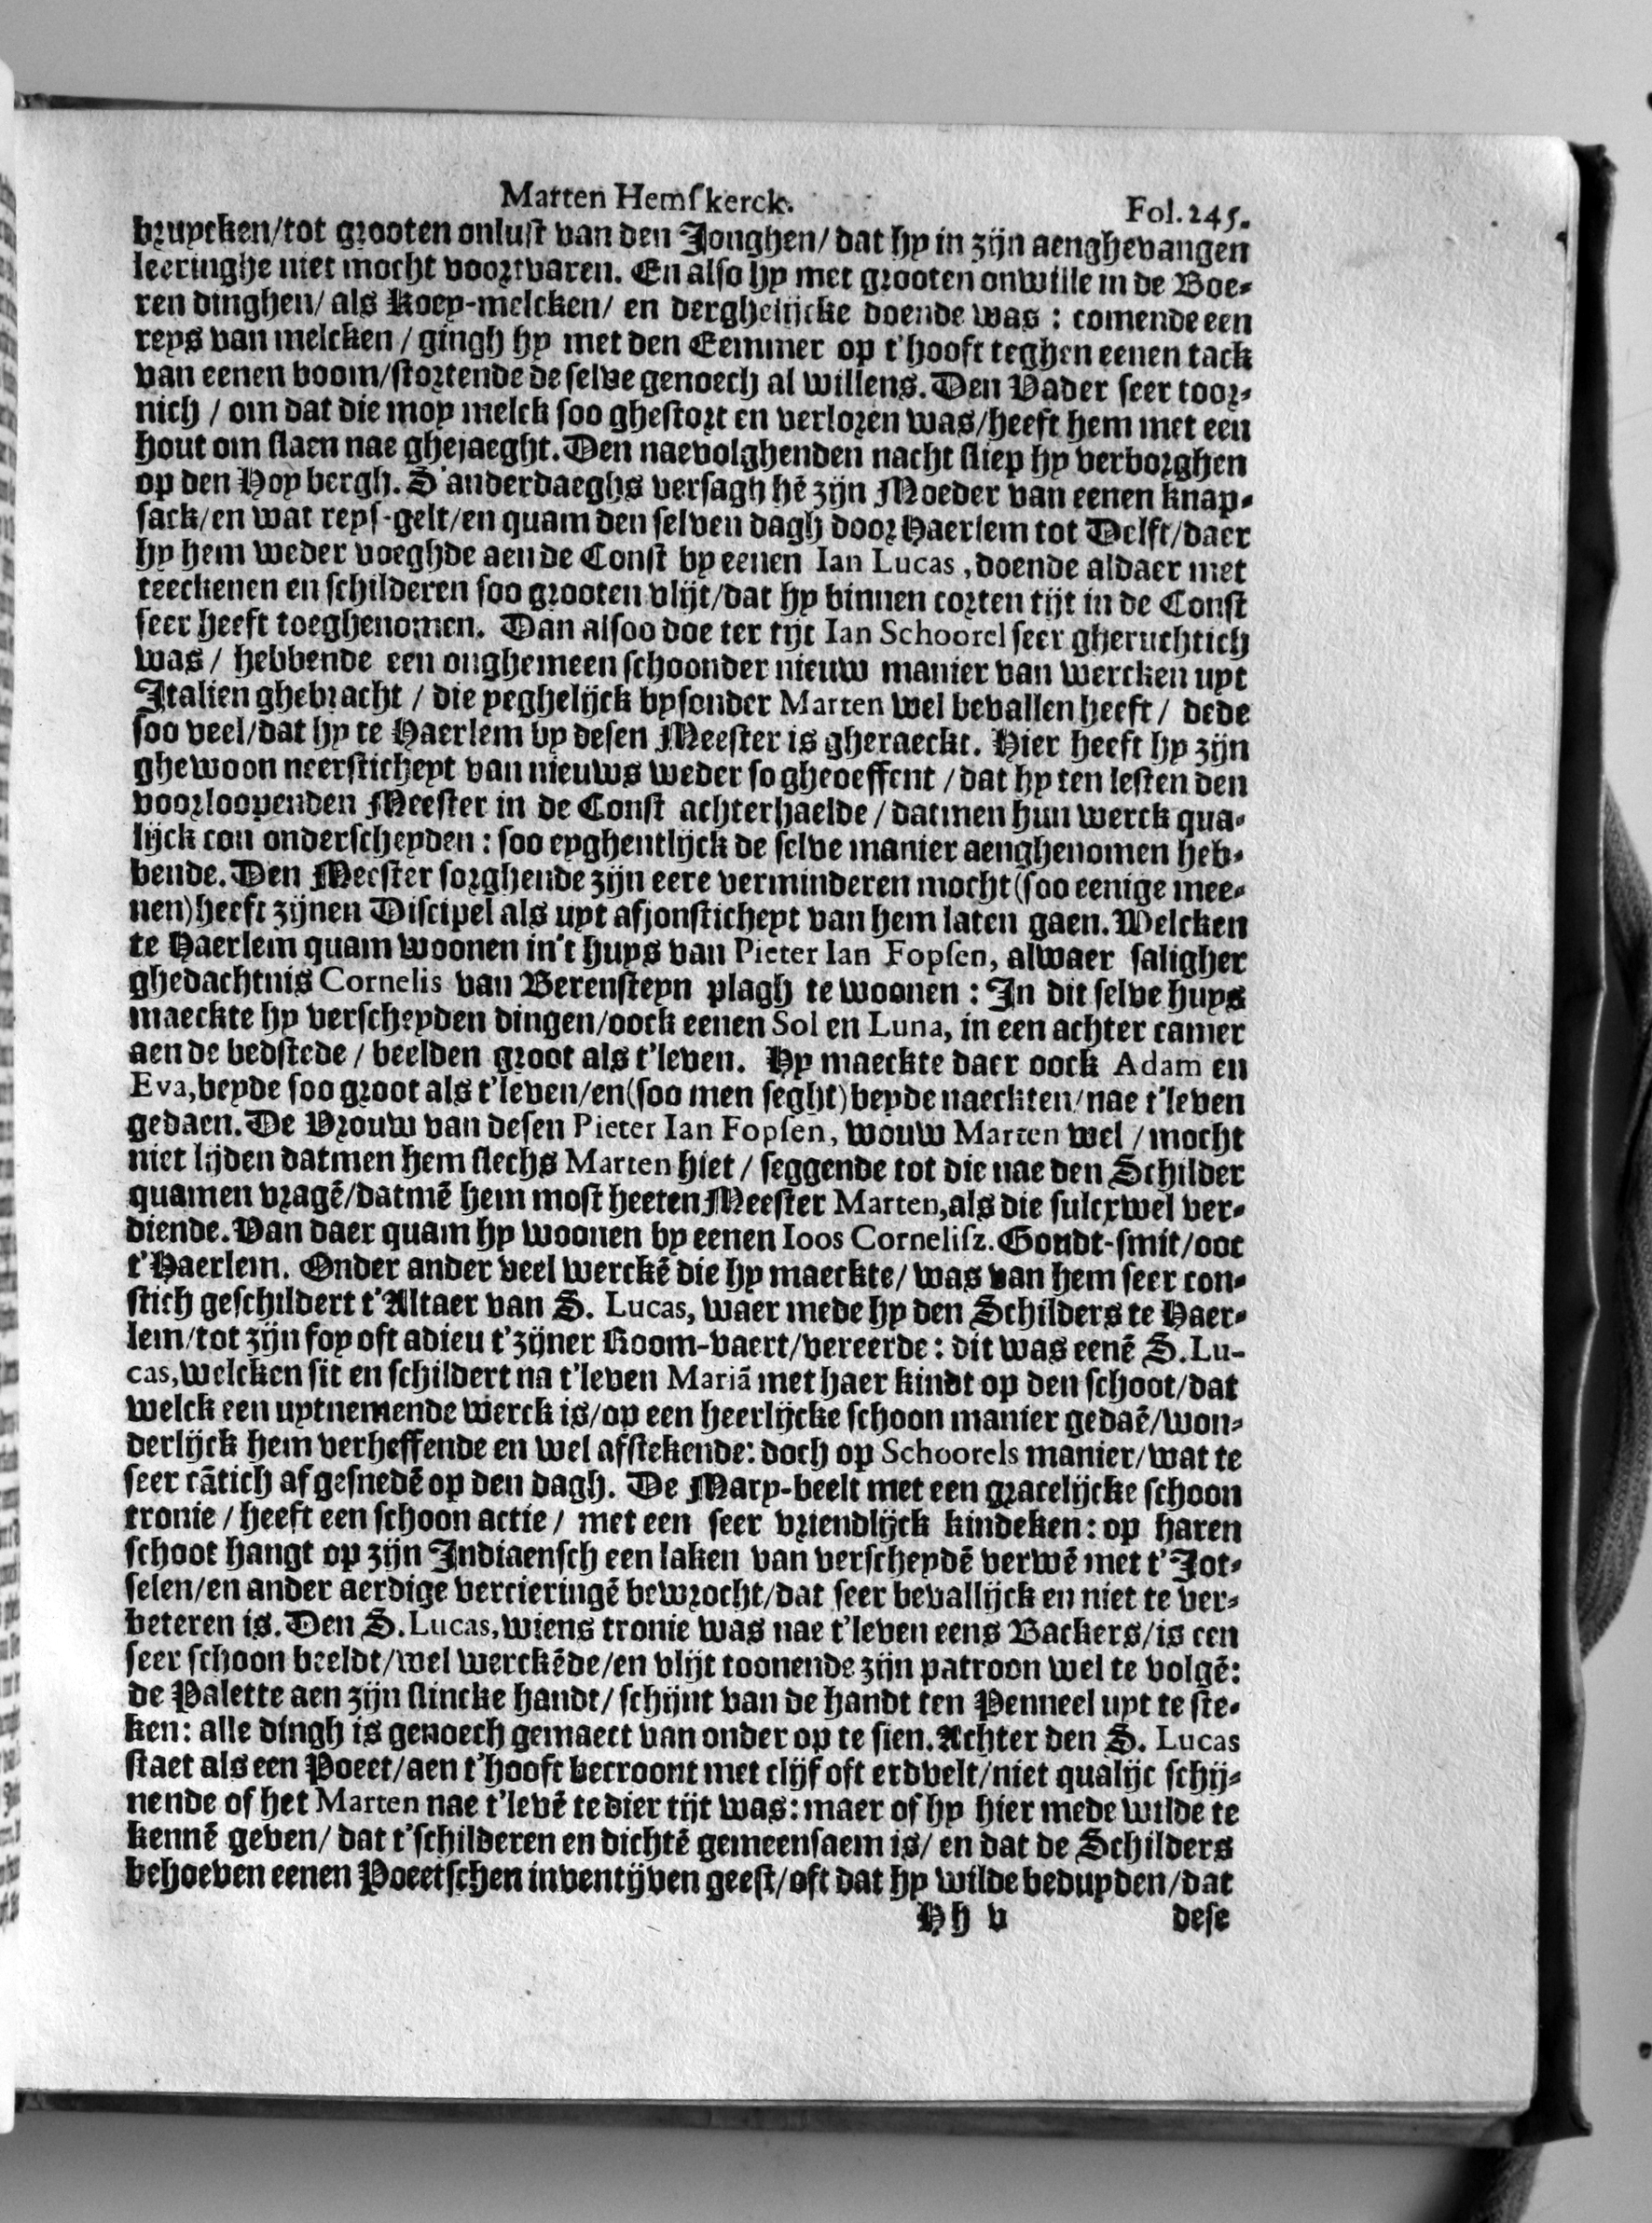 Marten Hemſkerck. Fol. 245.
bruycken/tot grooten onluſt van den Jonghen/ dat hy in zijn aenghevangen
leeringhe niet mocht voortvaren. En alſo hy met grooten onwille in de Boe-
ren dinghen/ als Koey-melcken/ en derghelijcke doende was : comende een
reys van melcken / gingh hy met den Eemmer op t'hooft teghen eenen tack
van eenen boom/ſtortende de ſelve genoech al willens. Den Vader ſeer toor-
nich / om dat die moy melck ſoo gheſtort en verloren was/heeft hem met een
hout om ſlaen nae ghejaeght. Den naevolghenden nacht ſliep hy verborghen
op den Hoy bergh. S'anderdaeghs verſagh hē zijn Moeder van eenen knap-
ſack/en wat reyſ-gelt/en quam den ſelven dagh door Haerlem tot Delft/daer
hy hem weder voeghde aen de Conſt by eenen Ian Lucas , doende aldaer met
teeckenen en ſchilderen ſoo grooten vlijt/dat hy binnen corten tijt in de Conſt
ſeer heeft toeghenomen. Dan alſoo doe ter tijt Ian Schoorel ſeer gheruchtich
was / hebbende een onghemeen ſchoonder nieuw manier van wercken uyt
Italien ghebracht / die yeghelijck byſonder Marten wel bevallen heeft / dede
ſoo veel/dat hy te Haerlem by deſen Meeſter is gheraeckt. Hier heeft hy zijn
ghewoon neerſticheyt van nieuws weder ſo gheoeffent / dat hy ten leſten den
voorloopenden Meeſter in de Conſt achterhaelde / datmen hun werck qua-
lijck con onderſcheyden : ſoo eyghentlijck de ſelve manier aenghenomen heb-
bende. Den Meeſter ſorghende zijn eere verminderen mocht (ſoo eenige mee-
nen) heeft zijnen Diſcipel als uyt afjonſticheyt van hem laten gaen. Welcken
te Haerlem quam woonen in't huys van Pieter Ian Fopſen, alwaer ſaligher
ghedachtnis Cornelis van Berenſteyn plagh te woonen : In dit ſelve huys
maeckte hy verſcheyden dingen/oock eenen Sol en Luna, in een achter camer
aen de bedſtede / beelden groot als t'leven. Hy maeckte daer oock Adam en
Eva, beyde ſoo groot als t'leven/en (ſoo men ſeght) beyde naeckten/nae t'leven
gedaen. De Vrouw van deſen Pieter Ian Fopſen, wouw Marten wel / mocht
niet lijden datmen hem ſlechs Marten hiet / ſeggende tot die nae den Schilder
quamen vragē/datmē hem moſt heeten Meeſter Marten, als die ſulcx wel ver-
diende. Van daer quam hy woonen by eenen Ioos Corneliſz. Goudt-ſmit/ooc
t'Haerlem. Onder ander veel werckē die hy maeckte/ was van hem ſeer con-
ſtich geſchildert t'Altaer van S. Lucas, waer mede hy den Schilders te Haer-
lem/tot zijn foy oft adieu t'zijner Room-vaert/vereerde : dit was eenē S. Lu-
cas, welcken ſit en ſchildert na t'leven Mariā met haer kindt op den ſchoot/dat
welck een uytnemende werck is/op een heerlijcke ſchoon manier gedaē/won-
derlijck hem verheffende en wel afſtekende: doch op Schoorels manier/wat te
ſeer cātich afgeſnedē op den dagh. De Mary-beelt met een gracelijcke ſchoon
tronie / heeft een ſchoon actie / met een ſeer vriendlijck kindeken: op haren
ſchoot hangt op zijn Indiaenſch een laken van verſcheydē verwē met t'Jot-
ſelen/en ander aerdige vercieringē bewrocht/dat ſeer bevallijck en niet te ver-
beteren is. Den S. Lucas, wiens tronie was nae t'leven eens Backers/is een
ſeer ſchoon beeldt/wel werckēde/en vlijt toonende zijn patroon wel te volgē:
de Palette aen zijn ſlincke handt/ ſchijnt van de handt ten Penneel uyt te ſte-
ken: alle dingh is genoech gemaect van onder op te ſien. Achter den S. Lucas
ſtaet als een Poeet/aen t'hooft becroont met clijf oft erdvelt/niet qualijc ſchij-
nende of het Marten nae t'levē te dier tijt was: maer of hy hier mede wilde te
kennē geven/ dat t'ſchilderen en dichtē gemeenſaem is/ en dat de Schilders
behoeven eenen Poeetſchen inventijven geeſt/oft dat hy wilde beduyden/dat
Hh v deſe